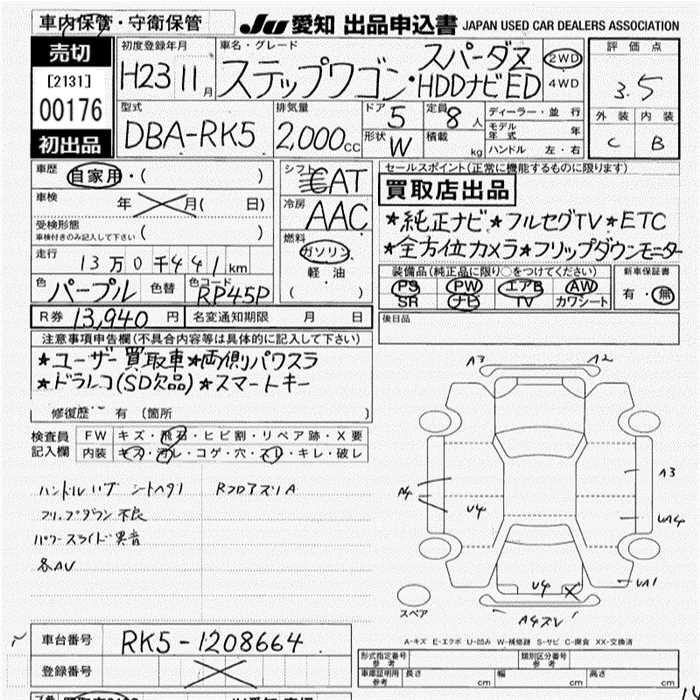 車内保管・守衛保管
JU 愛知 出品申込書 JAPAN USED CAR DEALERS ASSOCIATION
売切
[2131]
00176
初出品
初度登録年月
H23 11月
車名・グレード
スパーダZ
ステップワゴン・HDDナビED
2WD
4WD
評価点
3.5
外装 内装
C B
型式
DBA-RK5
排気量
2,000cc
ドア 5
定員 8人
形状 W
積載 kg
ディーラー・並行
モデル年式 年
ハンドル 左・右
車歴
自家用・( )
車検
年 月( 日)
受検形態
車検付きのみ記入して下さい ( )
走行
13万0千441km
色 パープル 色替 色コード RP45P
シフト
AT
冷房
AAC
燃料
ガソリン
軽油
( )
セールスポイント(正常に機能するものに限ります)
買取店出品
★純正ナビ★フルセグTV★ETC
★全方位カメラ★フリップダウンモニター
装備品(純正品に限り○をつけてください)
PS PW エアB AW
SR ナビ TV カワシート
新車保証書
有・無
R券 13,940円 名変通知期限 月 日
後日品
注意事項申告欄(不具合内容等は具体的に記入して下さい)
★ユーザー買取車★両側パワスラ
★ドラレコ(SD欠品)★スマートキー
修復歴 有 (箇所 )
検査員
記入欄
FW キズ・飛石・ヒビ割・リペア跡・X要
内装 キズ・汚レ・コゲ・穴・スレ・キレ・破レ
フリップダウン不良
パワースライド異音
各AV
A3 A2
A4
U4
A3
UA4
U4
UA1
A4ズレ
スペア
A-キズ E-エクボ U-凹み W-補修跡 S-サビ C-腐食 XX-交換済
車台番号 RK5-1208664
登録番号
型式指定番号 参考
類別区分番号 参考
車庫証明用 参考
長さ cm 幅 cm 高さ cm